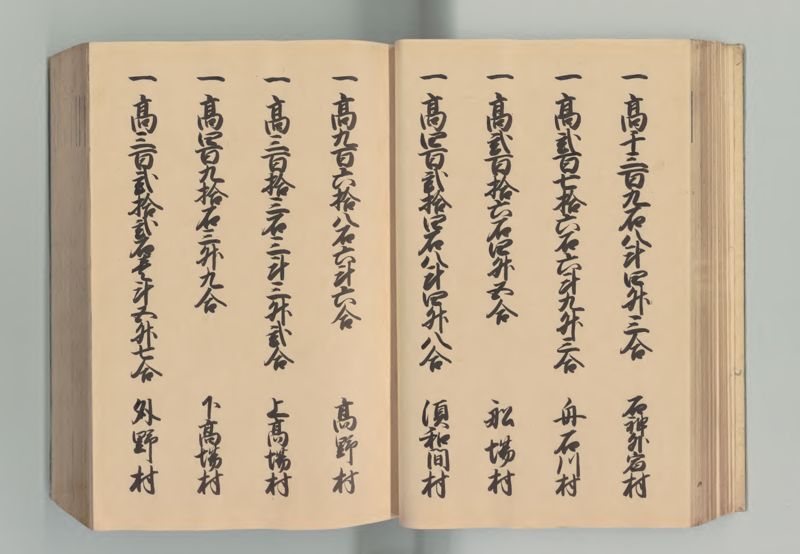 一 高千三百九石八斗四升三合 石神外宿村
一 高弐百七拾六石六斗九升三合 舟石川村
一 高弐百拾六石四升五合 船場村
一 高四百弐拾四石八斗四升八合 須和間村
一 高九百六拾八石六斗六合 高野村
一 高三百拾三石三斗三升弐合 上高場村
一 高四百九拾石三升九合 下高場村
一 高三百弐拾弐石壱斗五升七合 外野村